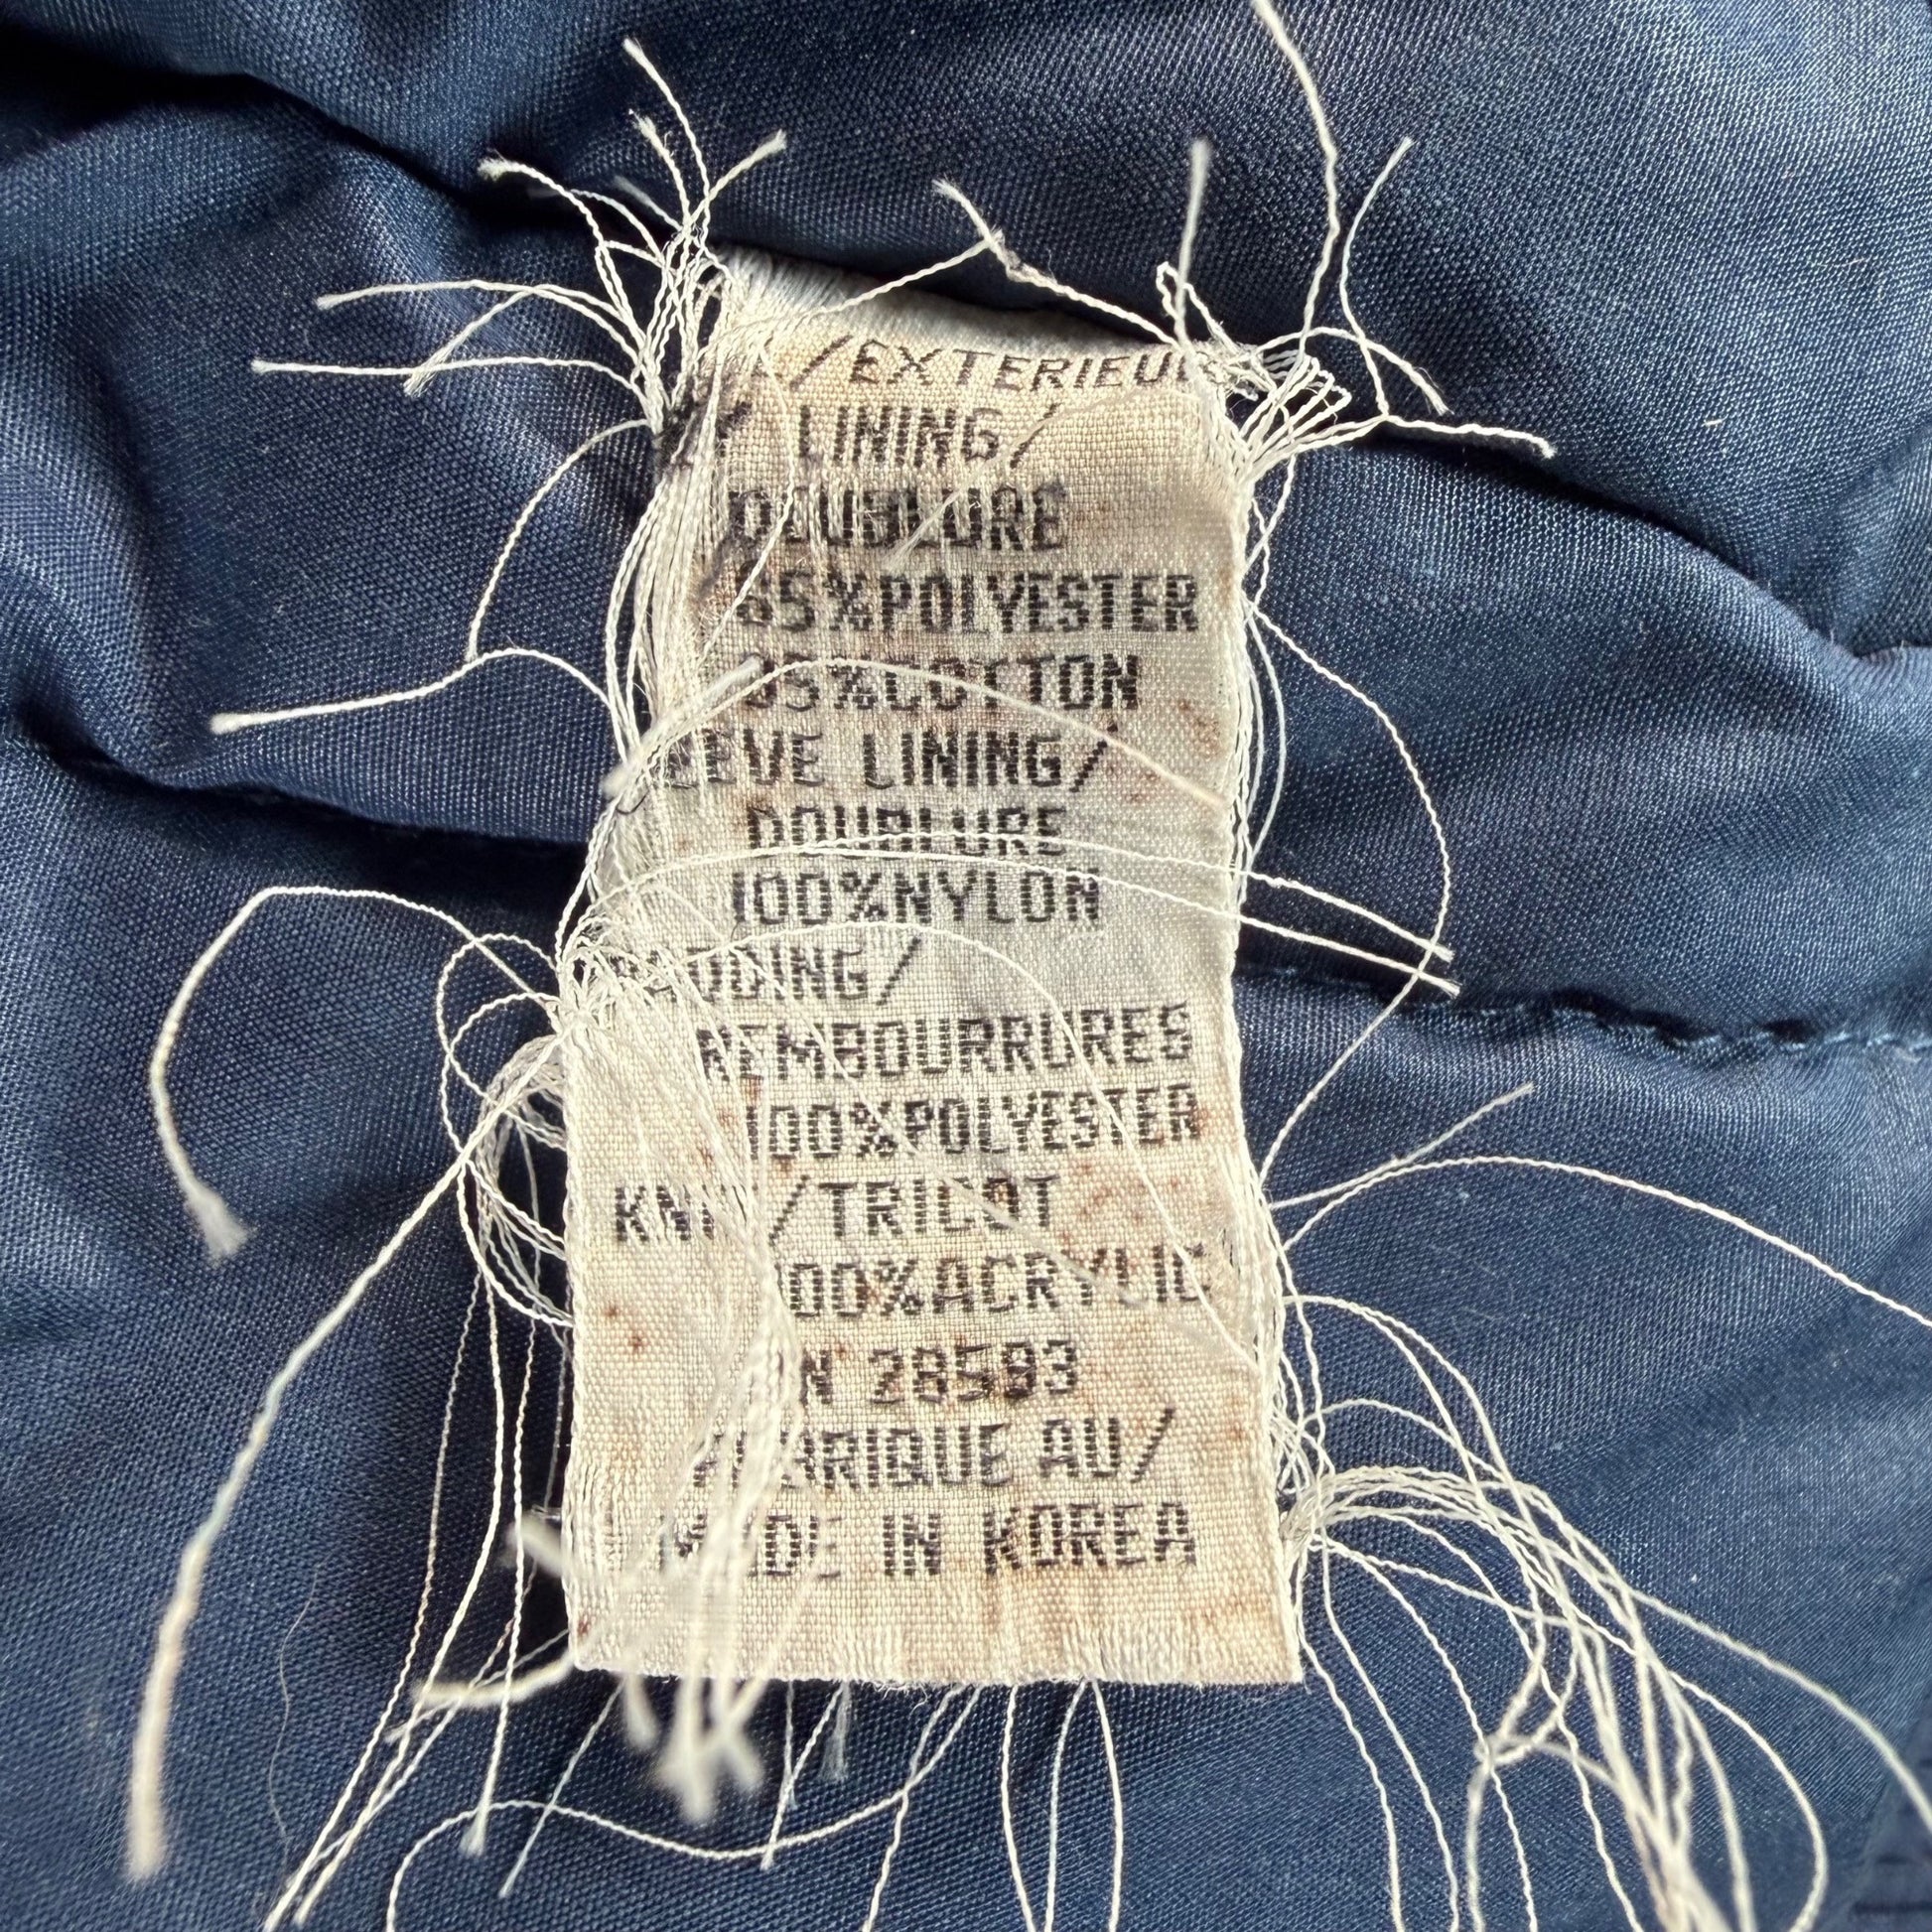 /EXTERIEUR
LINING/
DOUBLURE
65%POLYESTER
35%COTTON
LINING/
DOUBLURE
100%NYLON
PADDING/
REMBOURRURES
100%POLYESTER
KNIT/TRICOT
100%ACRYLIC
28583
FABRIQUE AU/
MADE IN KOREA